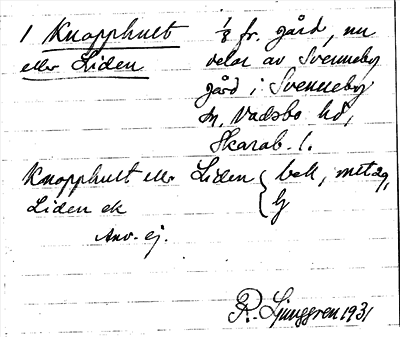 1 Knopphult
eller Liden
1/8 fr. gård, nu
delar av Svenneby
gård i Svenneby
sn, Vadsbo hd,
Skarab. l.
Knopphult eller Liden { bek, metag,
Liden ek
Anv. ej.
R. Ljunggren 1931